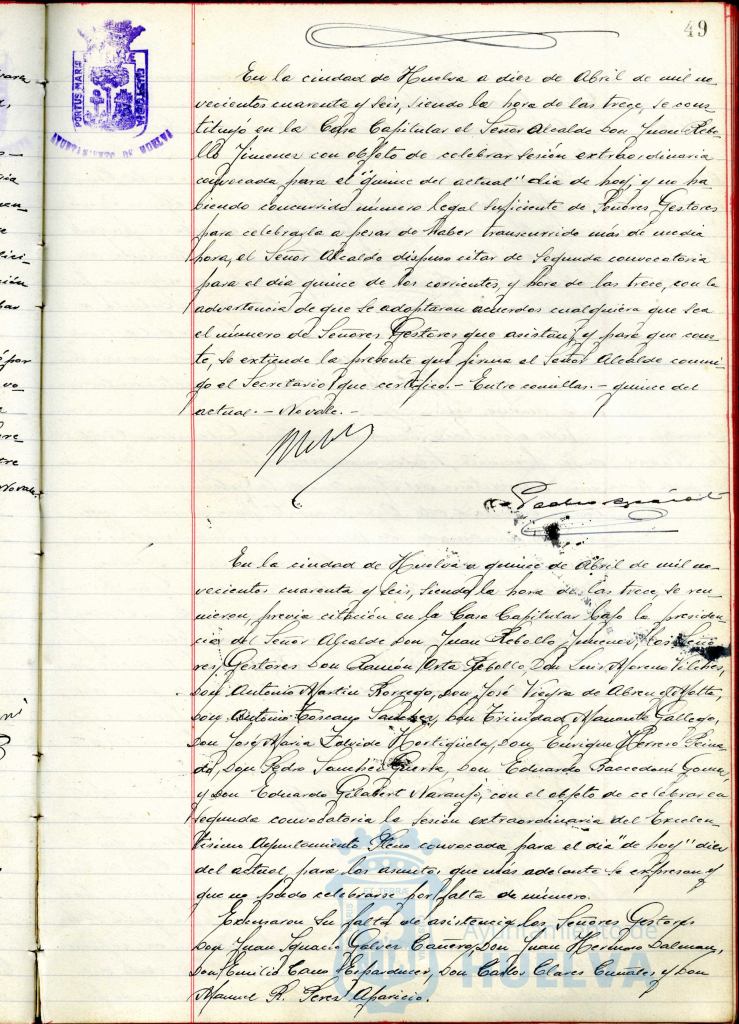 49
PORTUS MARIS
AYUNTAMIENTO DE HUELVA
En la ciudad de Huelva a diez de Abril de mil no-
vecientos cuarenta y seis, siendo la hora de las trece, se cons-
tituyó en la Casa Capitular el Señor Alcalde Don Juan Rebo-
llo Jimenez con objeto de celebrar sesión extraordinaria
convocada para el "quince del actual" dia de hoy, y no ha-
biendo concurrido número legal suficiente de Señores Gestores
para celebrarla a pesar de haber transcurrido más de media
hora, el Señor Alcalde dispuso citar de Segunda convocatoria
para el dia quince de los corrientes, y hora de las trece, con la
advertencia de que se adoptaran acuerdos cualquiera que sea
el número de Señores Gestores que asistan, y para que cons-
te, se extiende la presente que firma el Señor Alcalde conmi-
go el Secretario que certifico.- Entre comillas.- quince del
actual.- No vale.-
En la ciudad de Huelva a quince de Abril de mil no-
vecientos cuarenta y seis, siendo la hora de las trece, se reu-
nieron, previa citación en la Casa Capitular bajo la presiden-
cia del Señor Alcalde Don Juan Rebollo Jimenez, los Seño-
res Gestores Don Ramón Arta Rebollo, Don Luis Moreno Vilches,
Don Antonio Martin Borrego, Don José Vieyra de Abreu Motta,
Don Antonio Toscano Sanchez, Don Trinidad Gallego,
Don José Maria Hortigüela, Don Enrique Herrero Peina-
do, Don Pedro Sanchez Guerra, Don Eduardo Gomez
y Don Eduardo Gilabert Naranjo, con el objeto de celebrar en
segunda convocatoria la sesión extraordinaria del Excelen-
tisimo Ayuntamiento Pleno convocada para el dia "de hoy" diez
del actual, para los asuntos que más adelante se expresan y
que no pudo celebrarse por falta de número.
Excusaron su falta de asistencia los Señores Gestores
Don Juan Ignacio Galvez Cañero, Don Juan Hermoso Dalmau,
Don Emilio Cano, Don Carlos Clares y Don
Manuel R. Perez Aparicio.
Ayuntamiento de
HUELVA